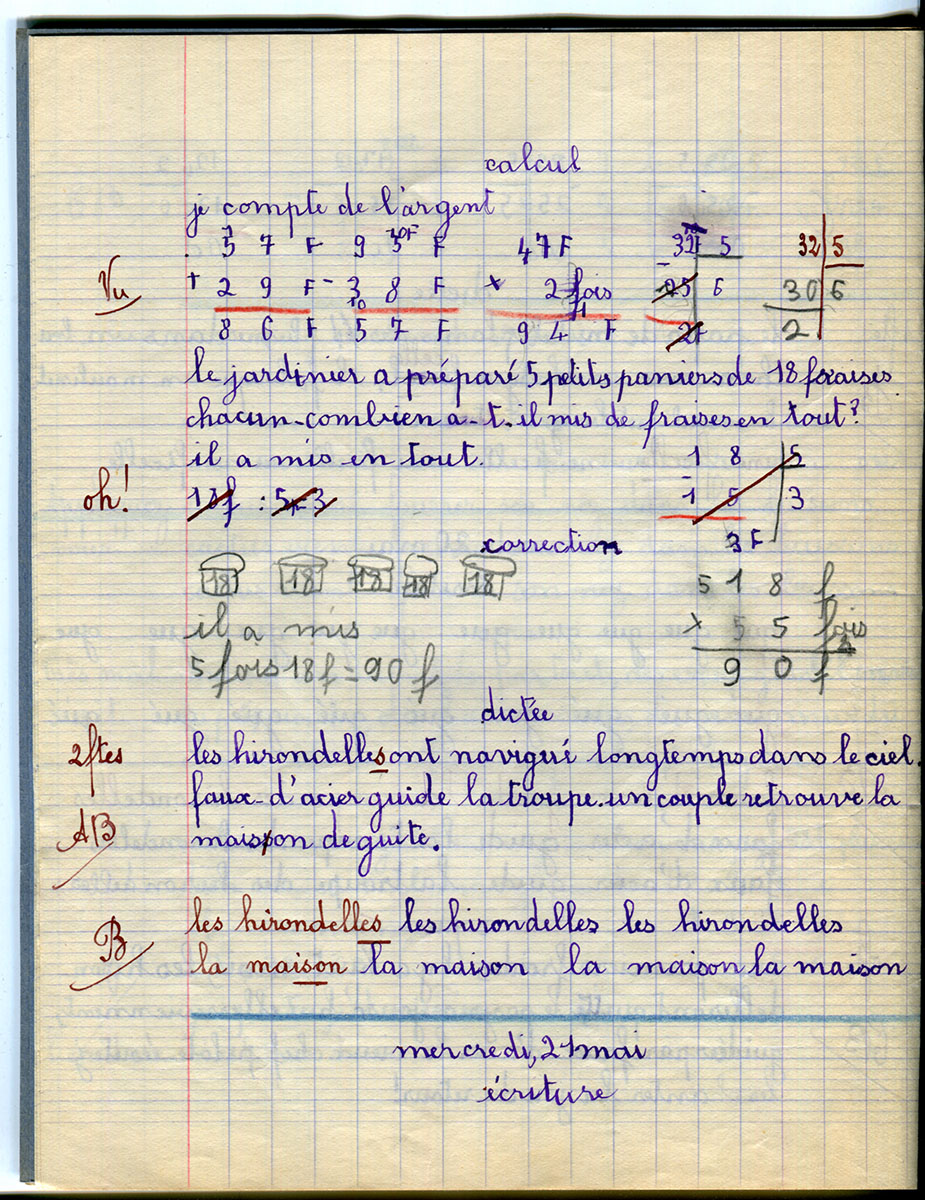 calcul
je compte de l'argent
5 7 F 9 5 F 47F 32F 5 32 5
Vu + 2 9 F - 3 8 F × 2 fois - 25 6 30 6
8 6 F 5 7 F 9 4 F 2F 2
le jardinier a préparé 5 petits paniers de 18 fraises
chacun-combien a-t. il mis de fraises en tout?
il a mis en tout. 1 8 5
oh! 18f : 5 = 3 - 1 5 3
correction 3 F
18 18 18 18 18 5 1 8 f
il a mis × 5 5 fois
5 fois 18 f = 90 f 9 0 f
dictée
2ftes les hirondelles ont navigué longtemps dans le ciel.
faux-d'acier guide la troupe. un couple retrouve la
AB maison de guite.
B les hirondelles les hirondelles les hirondelles
la maison la maison la maison la maison
mercredi, 21 mai
écriture